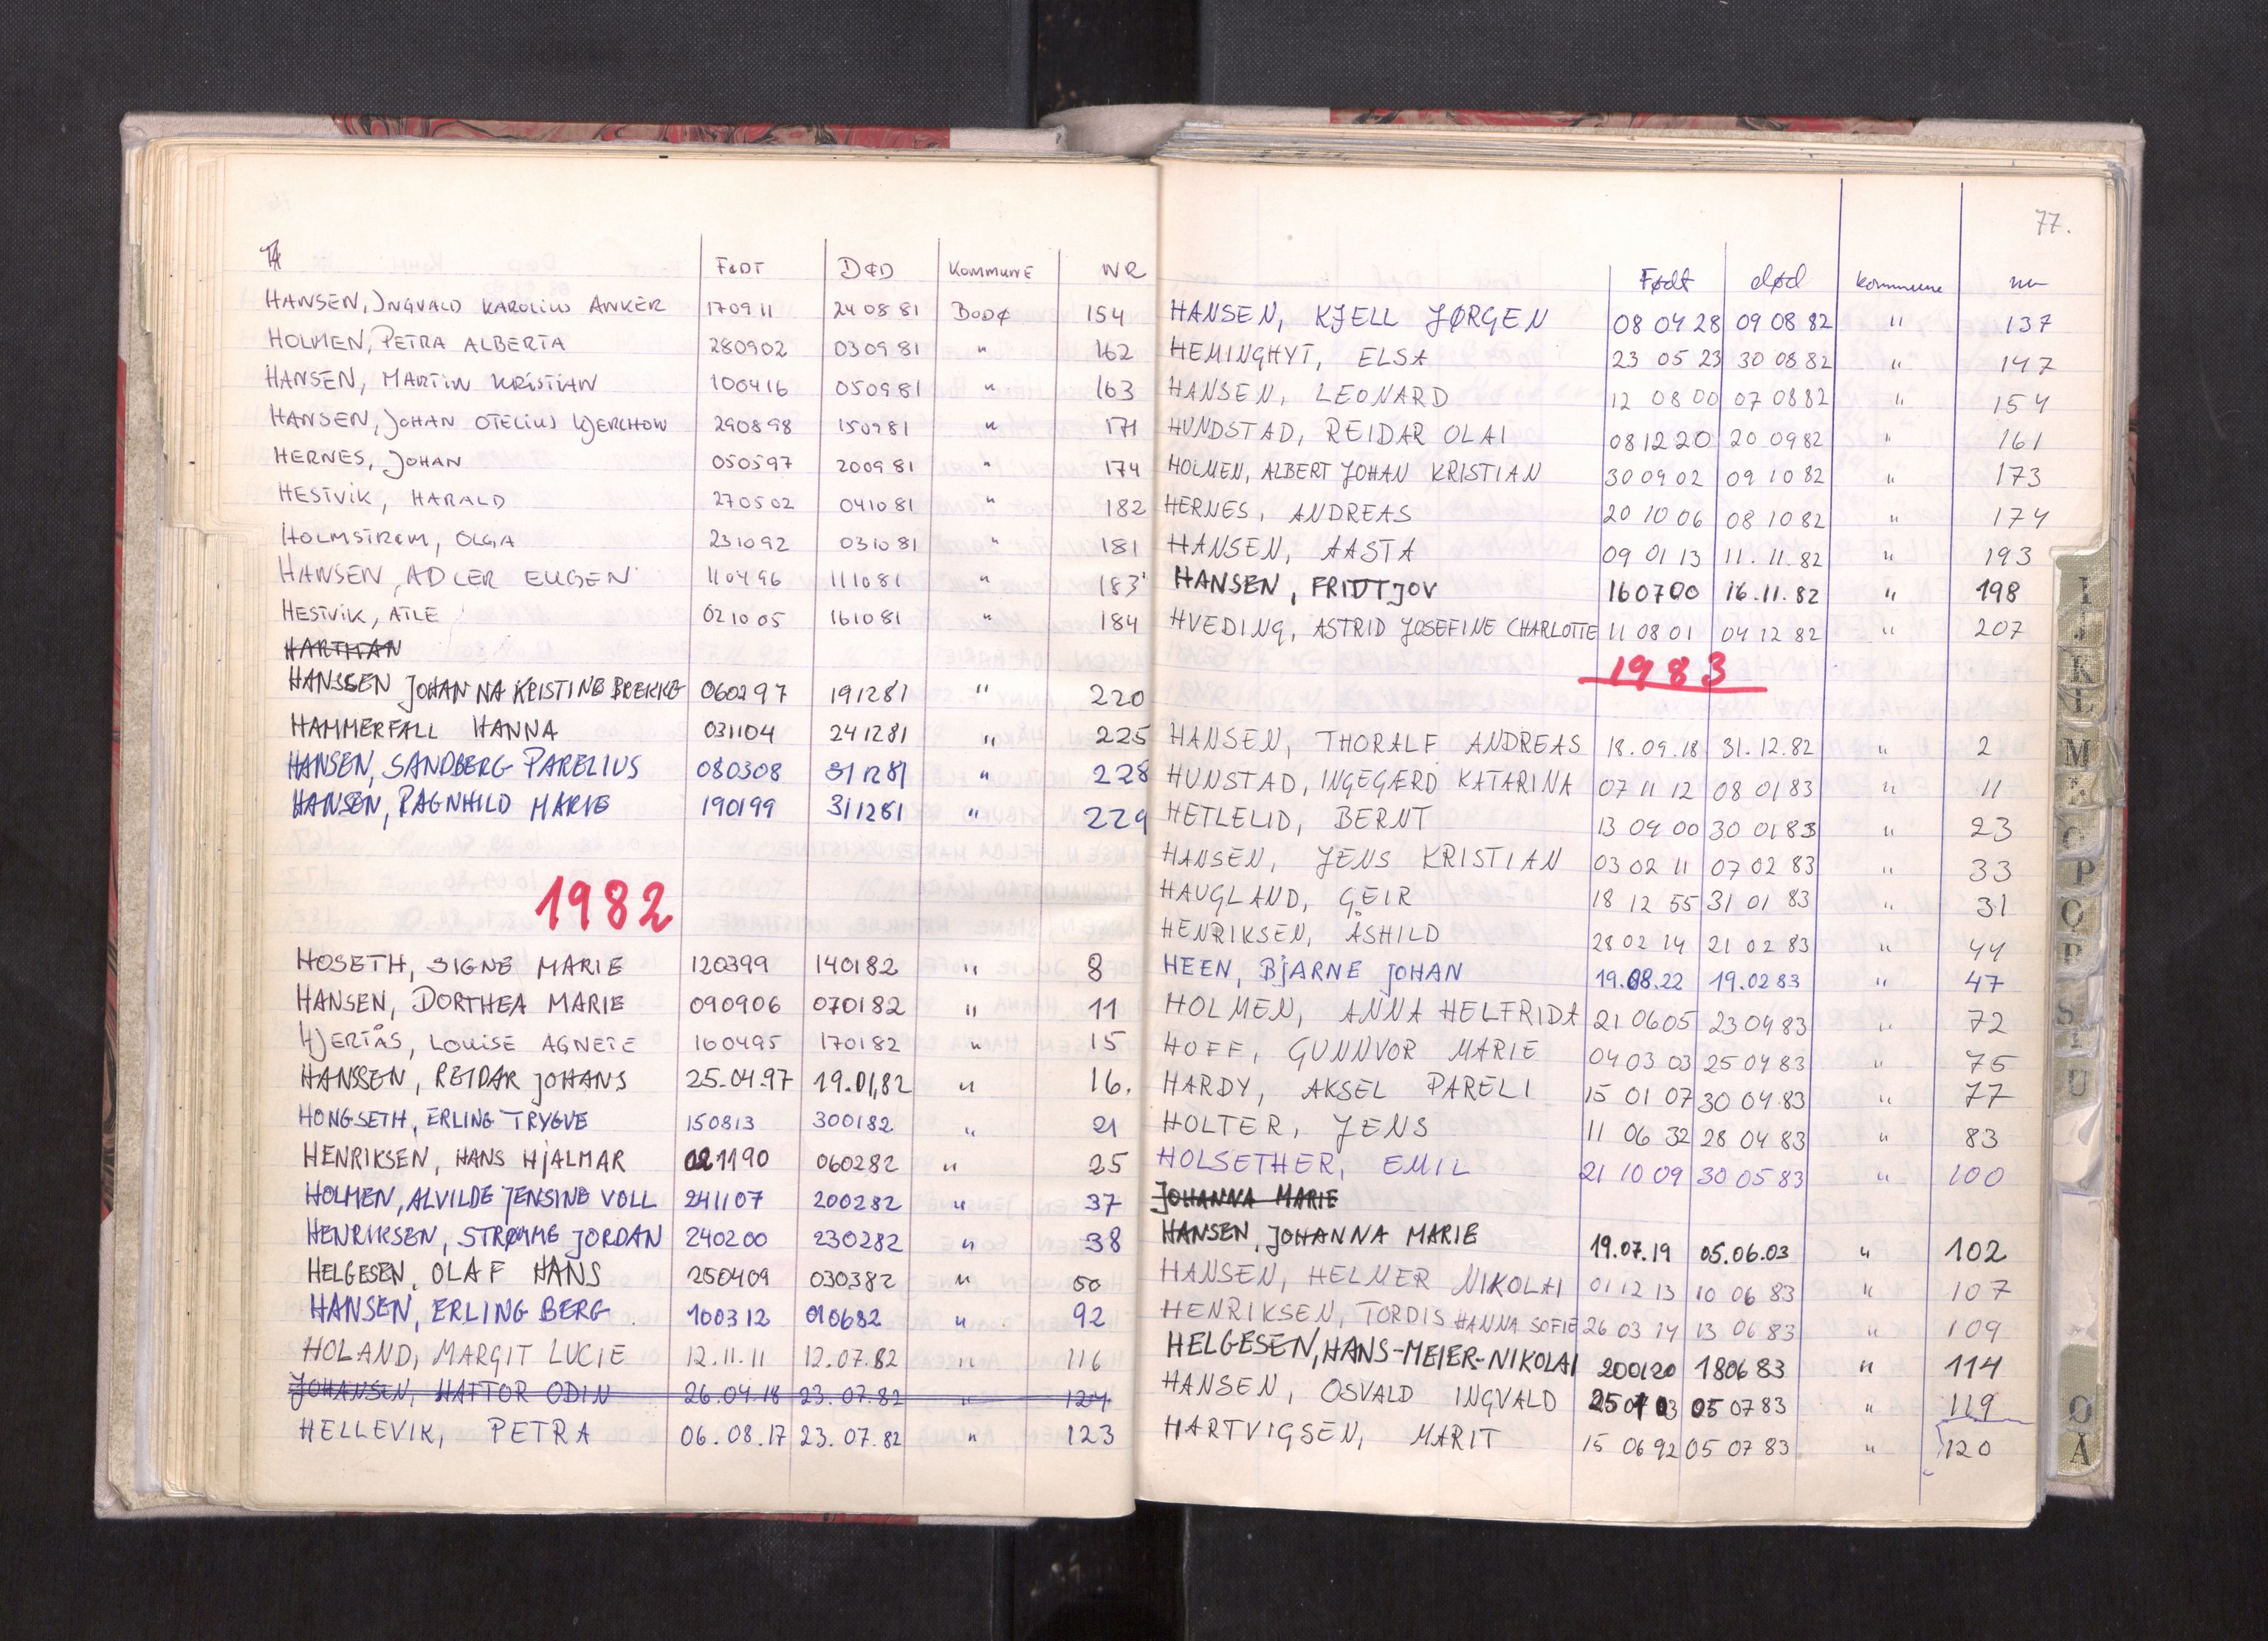 FØDT DØD KOMMUNE NR
HANSEN, INGVALD KAROLIUS ANKER 170911 240881 BODØ 154
HOLMEN, PETRA ALBERTA 280902 030981 " 162
HANSEN, MARTIN KRISTIAN 100416 050981 " 163
HANSEN, JOHAN OTELIUS KJERCHOW 290898 150981 " 171
HERNES, JOHAN 050597 200981 " 174
HESTVIK, HARALD 270502 041081 " 182
HOLMSTRØM, OLGA 231092 031081 " 181
HANSEN, ADLER EUGEN 110496 111081 " 183
HESTVIK, ATLE 021005 161081 " 184
HARTMAN
HANSSEN JOHANNA KRISTINE BREKKE 060297 191281 " 220
HAMMERFALL HANNA 031104 241281 " 225
HANSEN, SANDBERG PARELIUS 080308 311281 " 228
HANSEN, RAGNHILD MARIE 190199 311281 " 229
1982
HOSETH, SIGNE MARIE 120399 140182 " 8
HANSEN, DORTHEA MARIE 090906 070182 " 11
HJERTÅS, LOUISE AGNETE 160495 170182 " 15
HANSSEN, REIDAR JOHANS 25.04.97 19.01.82 " 16.
HONGSETH, ERLING TRYGVE 150813 300182 " 21
HENRIKSEN, HANS HJALMAR 021190 060282 " 25
HOLMEN, ALVILDE JENSINE VOLL 241107 200282 " 37
HENRIKSEN, STRØMME JORDAN 240200 230282 " 38
HELGESEN, OLAF HANS 250409 030382 "
HANSEN, ERLING BERG 100312 010682 " 92
HOLAND, MARGIT LUCIE 12.11.11 12.07.82 " 116
JOHANSEN, HATTOR ODIN 26.04.18 23.07.82 " 124
HELLEVIK, PETRA 06.08.17 23.07.82 " 123
77.
Født død kommune nr
HANSEN, KJELL JØRGEN 08 04 28 09 08 82 " 137
HEMINGHYT, ELSA 23 05 23 30 08 82 " 147
HANSEN, LEONARD 12 08 00 07 08 82 " 154
HUNDSTAD, REIDAR OLAI 08 12 20 20 09 82 " 161
HOLMEN, ALBERT JOHAN KRISTIAN 30 09 02 09 10 82 " 173
HERNES, ANDREAS 20 10 06 08 10 82 " 174
HANSEN, AASTA 09 01 13 11.11.82 " 193
HANSEN, FRIDTJOV 160700 16.11.82 " 198
HVEDING, ASTRID JOSEFINE CHARLOTTE 11 08 01 04 12 82 " 207
1983
HANSEN, THORALF ANDREAS 18.09.18 31.12.82 " 2
HUNSTAD, INGEGÆRD KATARINA 07 11 12 08 01 83 " 11
HETLELID, BERNT 13 09 00 30 01 83 " 23
HANSEN, JENS KRISTIAN 03 02 11 07 02 83 " 33
HAUGLAND, GEIR 18 12 55 31 01 83 " 31
HENRIKSEN, ÅSHILD 28 02 14 21 02 83 " 44
HEEN, BJARNE JOHAN 19.08.22 19.02 83 " 47
HOLMEN, ANNA HELFRIDA 21 06 05 23 04 83 " 72
HOFF, GUNNVOR MARIE 04 03 03 25 04 83 " 75
HARDY, AKSEL PARELI 15 01 07 30 04 83 " 77
HOLTER, JENS 11 06 32 28 04 83 " 83
HOLSETHER, EMIL 21 10 09 30 05 83 " 100
JOHANNA MARIE
HANSEN, JOHANNA MARIE 19.07.19 05.06.03 " 102
HANSEN, HELMER NIKOLAI 01 12 13 10 06 83 " 107
HENRIKSEN, TORDIS HANNA SOFIE 26 03 14 13 06 83 " 109
HELGESEN, HANS-MEIER-NIKOLAI 200120 180683 " 114
HANSEN, OSVALD INGVALD 05 07 83 " 119
HARTVIGSEN, MARIT 15 06 92 05 07 83 " 120
I
J
K
L
M
O
P
Q
R
S
T
U
Ø
Å